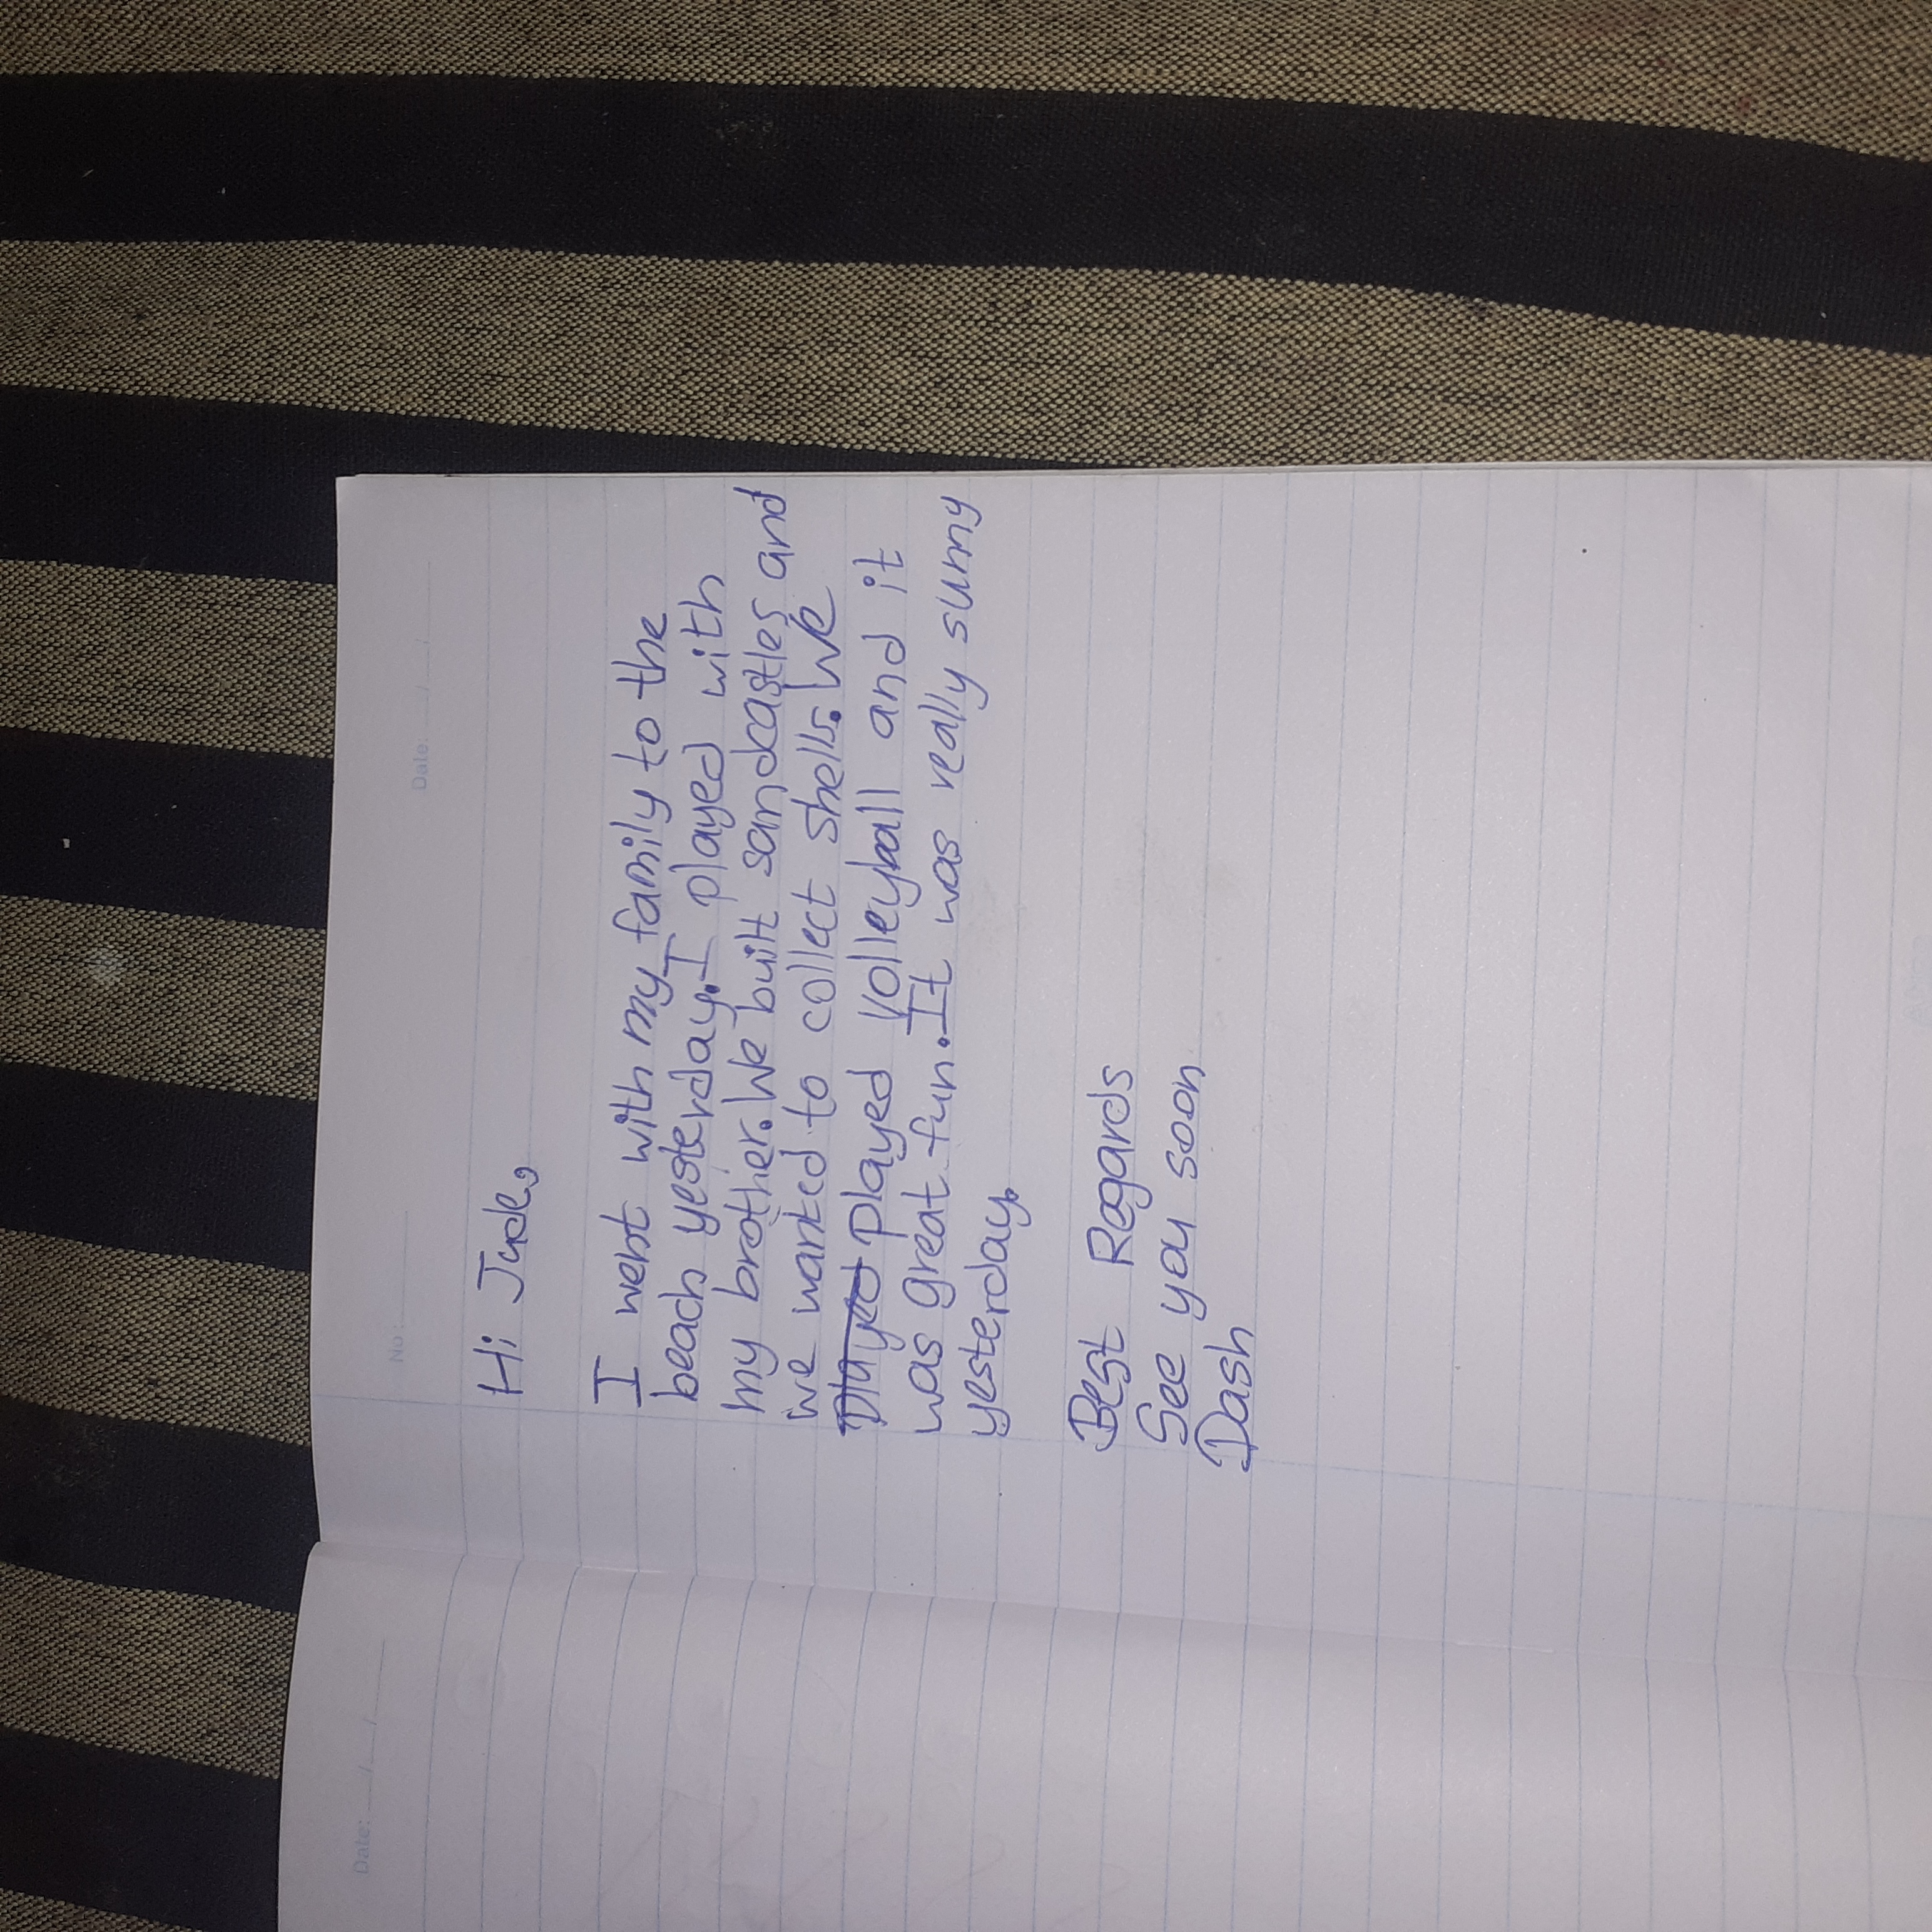 No:
Date: / /
Hi Jude,
I went with my family to the
beach yesterday. I played with
my brother. We built sandcastles and
we wanted to collect shells. We
played played Volleyball and it
was great fun. It was really sunny
yesterday.
Best Regards
See you soon
Dash
Date: / /